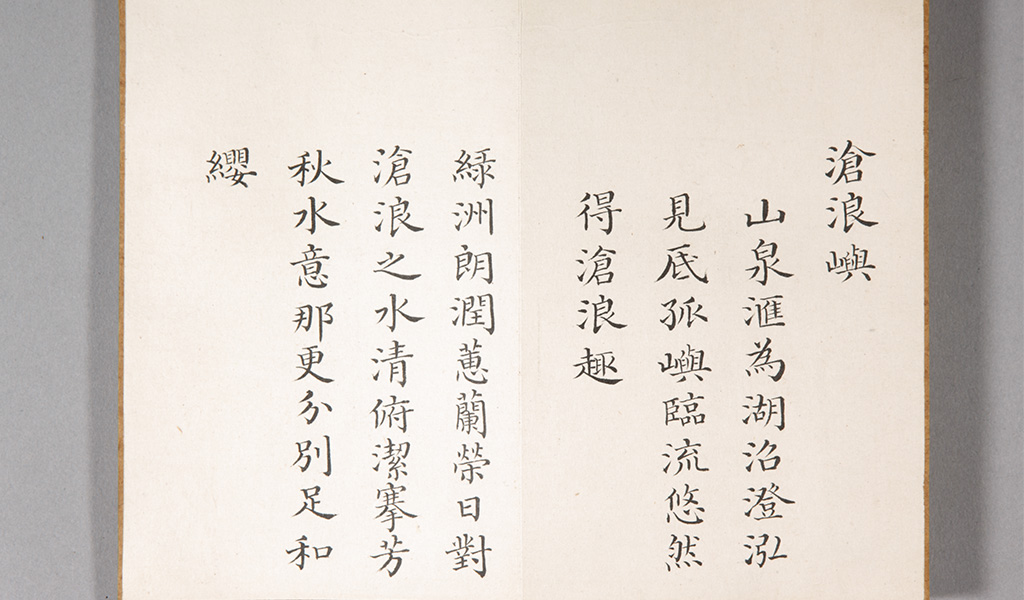 滄浪嶼
山泉滙為湖沿澄泓
見底孤嶼臨流悠然
得滄浪趣
綠洲朗潤蕙蘭榮日對
滄浪之水清俯潔搴芳
秋水意那更分別足和
纓